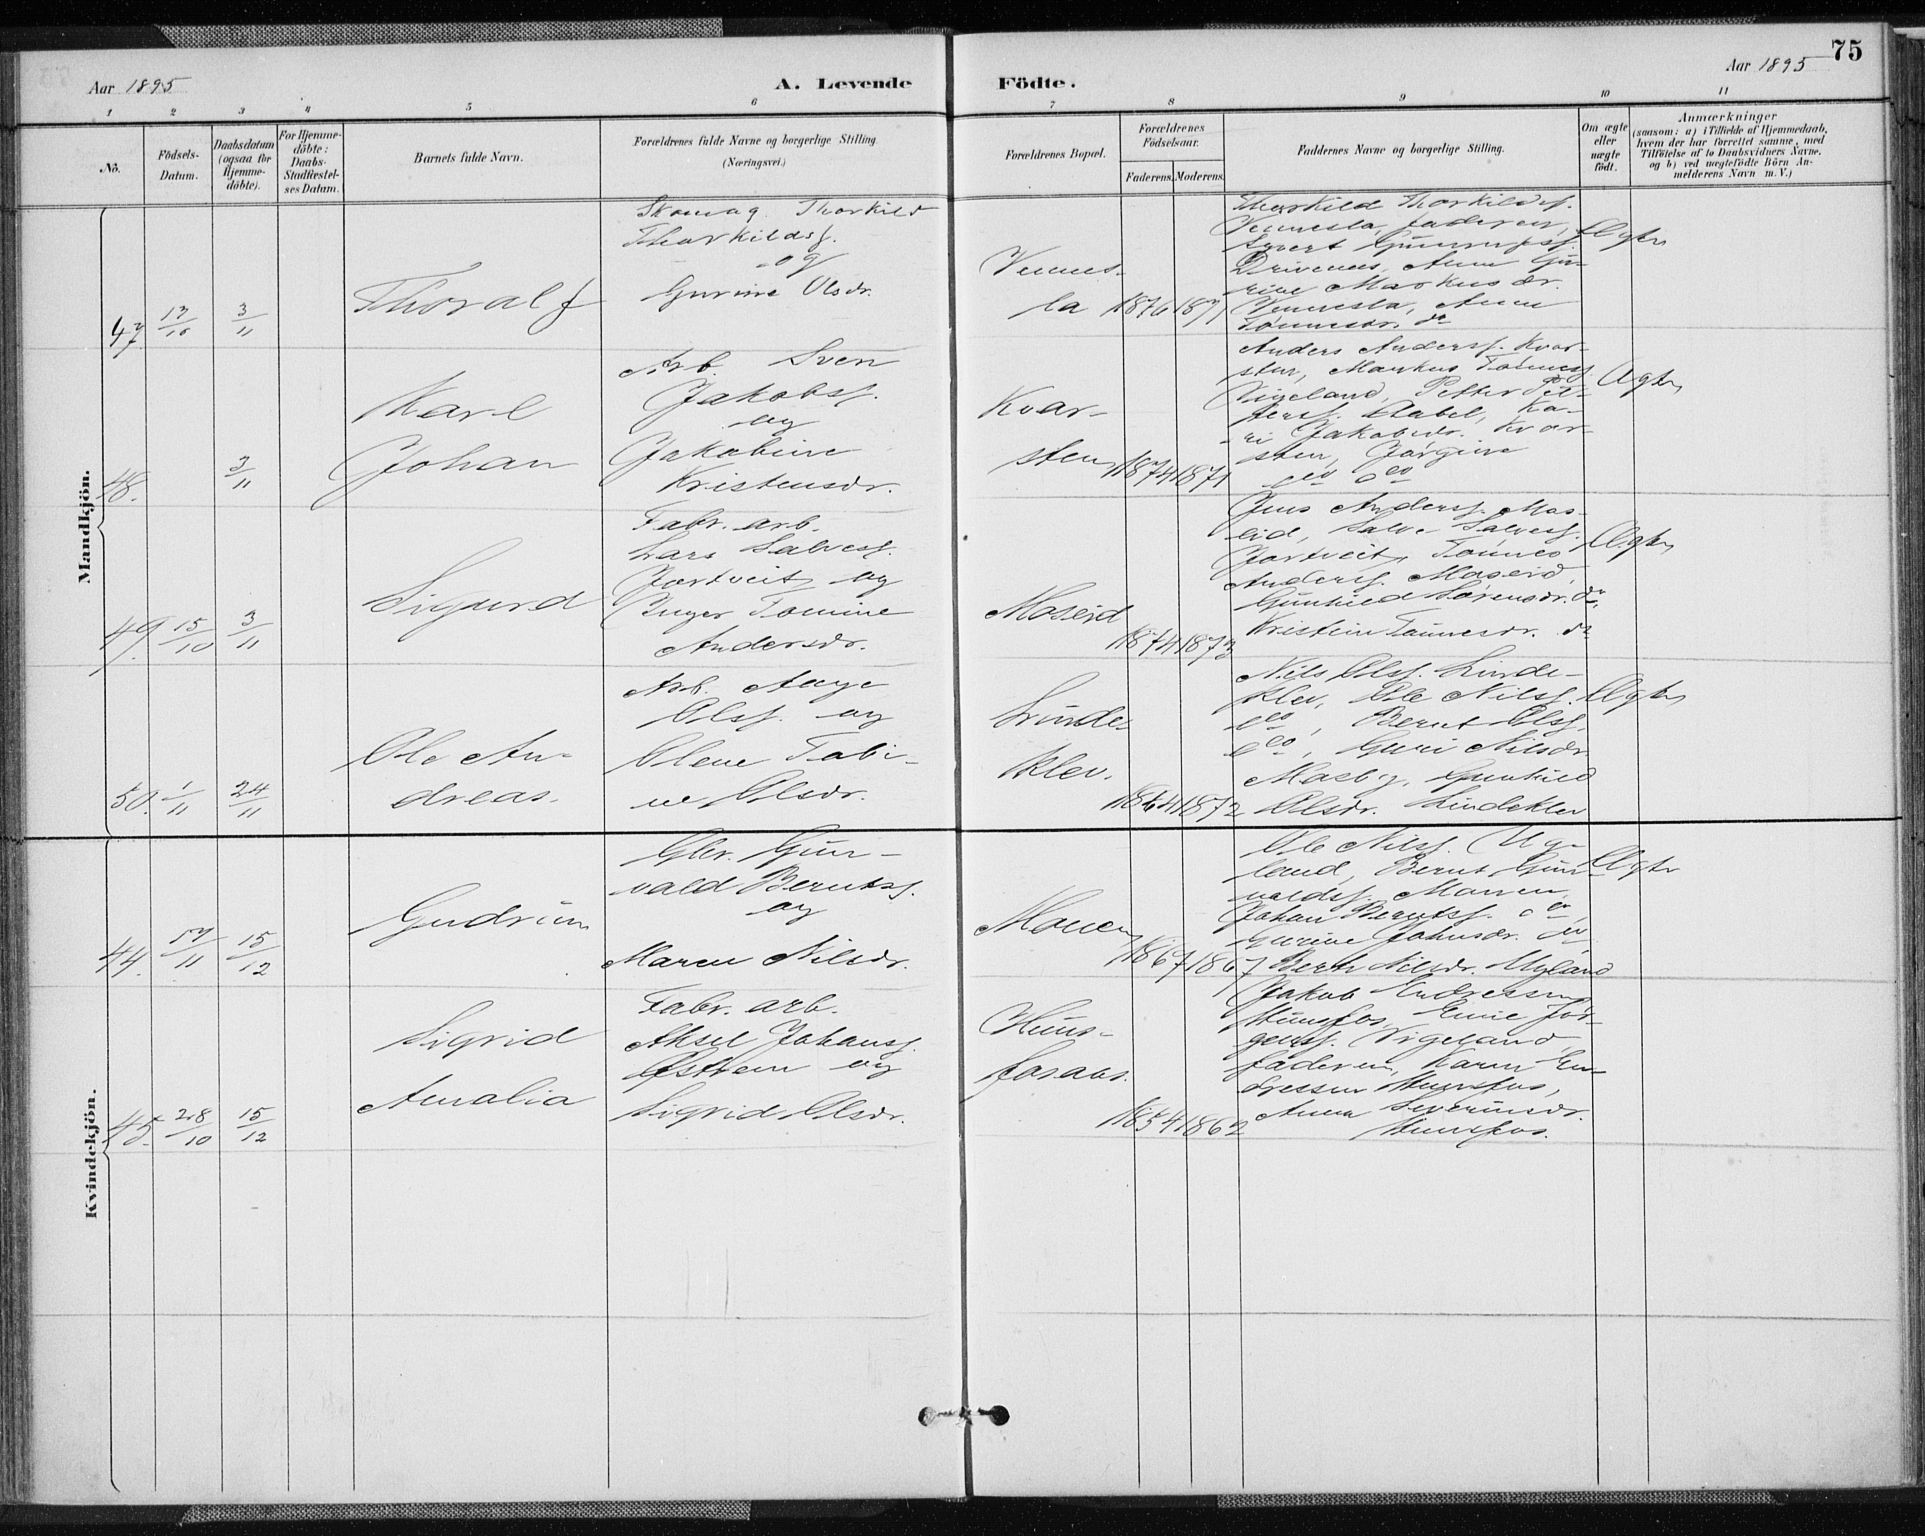 Aar 1895
A. Levende
Födte.
Aar 1895
75
1 2 3 4 5 6 7 8 9 10 11
No.
Födsels-
Datum.
Daabsdatum
(ogsaa for
Hjemme-
döbte).
For Hjemme-
döbte:
Daabs-
Stadfæstel-
ses Datum.
Barnets fulde Navn.
Forældrenes fulde Navne og borgerlige Stilling
(Næringsvei.)
Forældrenes Bopæl.
Forældrenes
Födselsaar.
Faderens. Moderens.
Faddernes Navne og borgerlige Stilling.
Om ægte
eller
uægte
födt.
Anmærkninger
(saasom: a) i Tilfælde af Hjemmedaab,
hvem der har forrettet samme, med
Tilföielse af to Daabsvidners Navne,
og b) ved uægtefödte Börn An-
melderens Navn m. V.)
Mandkjön.
47.
3/11
Thoralf
Skomag. Thorkild
Thorkildsf.
og
Gurine Olsdr.
Vennes-
la
1876 1871
Thorkild Thorkildsf.
Vennesla, faderen,
Syvert
Drivenes, Anne Gu-
rine Markusdr.
Vennesla, Anne
Tönnesdr. do
Ægte
48.
3/11
Karl
Johan
Arb. Sven
Jakobsf.
og
Jakobine
Kristensdr.
Kvar-
sten
1874 1871
Anders Andersf. Kvar-
sten, Markus Tönnesf.
Vigeland, Petter Pet-
tersf. Aabel, Ka-
ri Jakobsdr. Kvar-
sten, Jörgine
do do
Ægte
49.
15/10
3/11
Sigurd
Fabr. arb.
Lars Salvesf.
Jortveit og
Inger Tomine
Andersdr.
Moseid
1874 1873
Jens Andersf. Mos-
eid, Salve Salvesf.
Jortveit, Tönnes
Andersf. Moseid,
Gunhild Sörensdr. do,
Kristein Tönnesdr. do
Ægte
50.
1/11
24/11
Ole An-
dreas.
Arb. Aage
Olsf. og
Olene Tobi-
ne Olsdr.
Linde-
klev.
1864 1872
Nils Olsf. Linde-
klev, Ole Nilsf.
do, Bernt Olsf.
do, Guri Nilsdr.
Mosby, Gunhild
Olsdr. Lindeklev
Ægte
Kvindekjön.
44.
15/12
Gudrun
Gbr. Gun-
vald Berntsf.
og
Maren Nilsdr.
Monen
1867 1867
Ole Nilsf. Ug-
land, Bernt Gun-
valdsf. Monen,
Johan Berntsf. do,
Gurine Johnsdr. do
Berte Nilsdr. Ugland
Ægte
45.
28/10
15/12
Sigrid
Amalia
Fabr. arb.
Aksel Johansf.
Östhem og
Sigrid Olsdr.
Huns-
fosaas.
1854 1862
Jakob Endressen
Hunsfos, Enie Jör-
gensf. Vigeland,
faderen, Karen En-
dressen Hunsfos,
Anna Severinsdr.
Hunsfos.